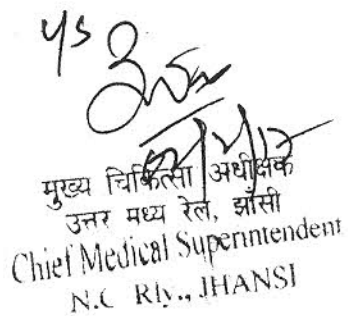 मुख्य चिकित्सा अधीक्षक
उत्तर मध्य रेल, झाँसी
Chief Medical Superintendent
N.C Rly., JHANSI